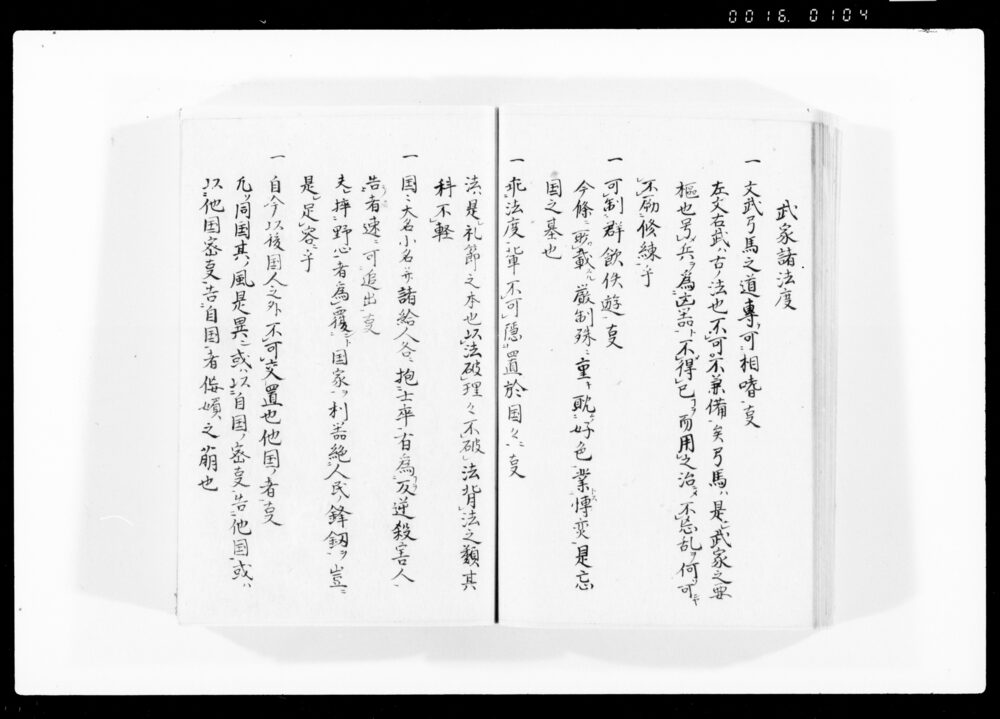 0016. 0104
武家諸法度
一 文武弓馬之道専可相嗜叓
左文右武ハ古ノ法也不可不兼備矣弓馬ハ是武家之要
枢也号兵ヲ為凶器不得已而用之治ニ不忘乱ヲ何可
不励修練乎
一 可制群飲佚遊叓
今條ニ所載厳制殊ニ重ヽ耽好色業博奕是忘
国之基也
一 乖法度輩不可隠置於国々ニ叓
法ハ是礼節之本也以法破理々不破法背法之類其
科不軽
一 国ニ大名小名并諸給人各ニ抱士卒有為反逆殺害人
告者速ニ可追出叓
夫挟野心者為覆国家ヲ利器絶人民ノ鋒釼ヲ豈ニ
是足容ニ乎
一 自今以後国人之外不可交置也他国ノ者叓
凡ソ同国其ノ風是異ニ或ハ以自国ノ密叓告他国或ハ
以他国密叓告自国者侮嬪之萠也